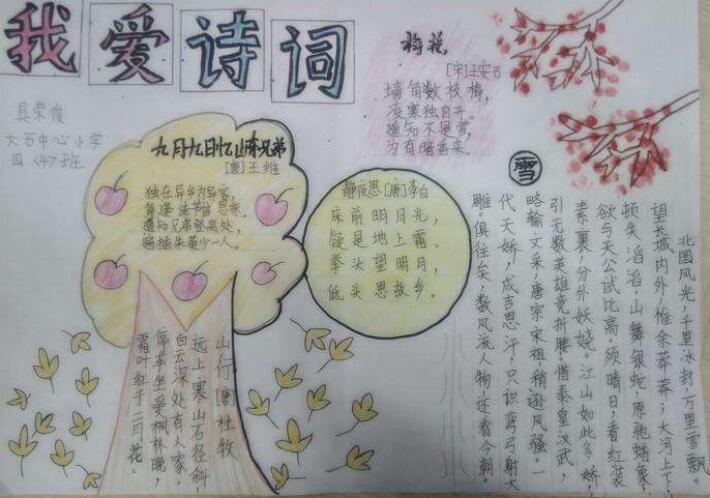 我爱诗词
县荣俊
大石中心小学
四〈4〉班
梅花
[宋]王安石
墙角数枝梅，
凌寒独自开
遥知不是雪，
为有暗香来.
九月九日忆山东兄弟
[唐]王维
独在异乡为异客
每逢佳节倍思亲.
遥知兄弟登高处，
遍插朱萸少一人，
静夜思[唐]李白
床前明月光，
疑是地上霜.
举头望明月，
低头思故乡.
山行[唐]杜牧
远上寒山石径斜，
白云深处有人家.
停车坐爱枫林晚，
霜叶红于二月花.
雪
北国风光，千里冰封，万里雪飘.
望长城内外，惟余莽莽；大河上下，
顿失滔滔.山舞银蛇，原驰蜡象，
欲与天公试比高.须晴日，看红装
素裹，分外妖娆.江山如此多娇
引无数英雄竞折腰.惜秦皇汉武，
略输文采，唐宗宋祖稍逊风骚.一
代天娇，成吉思汗，只识弯弓射大
雕.俱往矣，数风流人物，还看今朝.